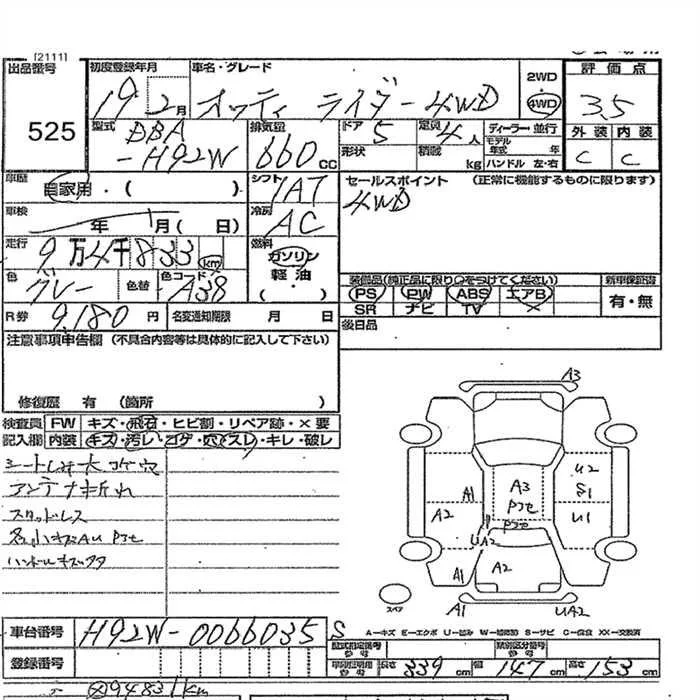 [2111]
出品番号 初度登録年月 車名・グレード 2WD 評価点
525
19年2月 オッティ ライダー 4WD 4WD 3.5
型式 排気量 ドア 定員 ディーラー・並行 外装 内装
DBA-H92W 660cc 5 4人 モデル年式 年 C C
形状 積載 kg ハンドル 左・右
車歴 自家用・( ) シフト 7AT セールスポイント (正常に機能するものに限ります)
4WD
車検 年 月( 日) 冷房 AC
走行 9万4千833km 燃料 ガソリン 軽油 ( )
色 グレー 色替 色コード A38
装備品(純正品に限り○をつけてください) 新車保証書
PS PW ABS エアB 有・無
SR ナビ TV
R券 9,180円 名変通知期限 月 日 後日品
注意事項申告欄(不具合内容等は具体的に記入して下さい)
修復歴 有 (箇所 )
検査員 FW キズ・飛石・ヒビ割・リペア跡・×要
記入欄 内装 キズ・汚レ・コゲ・穴・スレ・キレ・破レ
アンテナ折れ
スタッドレス
A3
U2
S1
A1
A3
A2
U1
UA2
A2
A1
スペア
A1
UA2
A-キズ E-エクボ U-凹み W-補修跡 S-サビ C-腐食 XX-交換済
車台番号 H92W-0066035 S
型式指定番号 類別区分番号
登録番号
長さ 339cm 幅 147cm 高さ 153cm
94831km